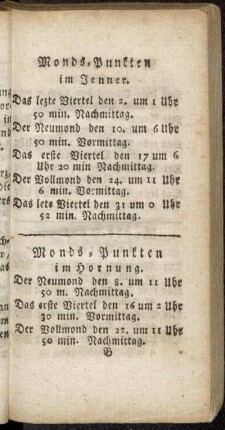 Monds-Punkten
im Jenner.
Das lezte Viertel den 2. um 1 Uhr
50 min. Nachmittag.
Der Neumond den 10. um 6 Uhr
50 min. Vormittag.
Das erste Viertel den 17 um 6
Uhr 20 min Nachmittag.
Der Vollmond den 24. um 11 Uhr
6 min. Vormittag.
Das lets Viertel den 31 um 0 Uhr
52 min. Nachmittag.
Monds-Punkten
im Hornung.
Der Neumond den 8. um 11 Uhr
50 m. Nachmittag.
Das erste Viertel den 16 um 2 Uhr
30 min. Vormittag.
Der Vollmond den 22. um 11 Uhr
50 min. Nachmittag.